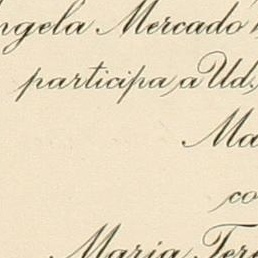 ngela Mercado
participa a Ud.
Ma
co
Maria Tere